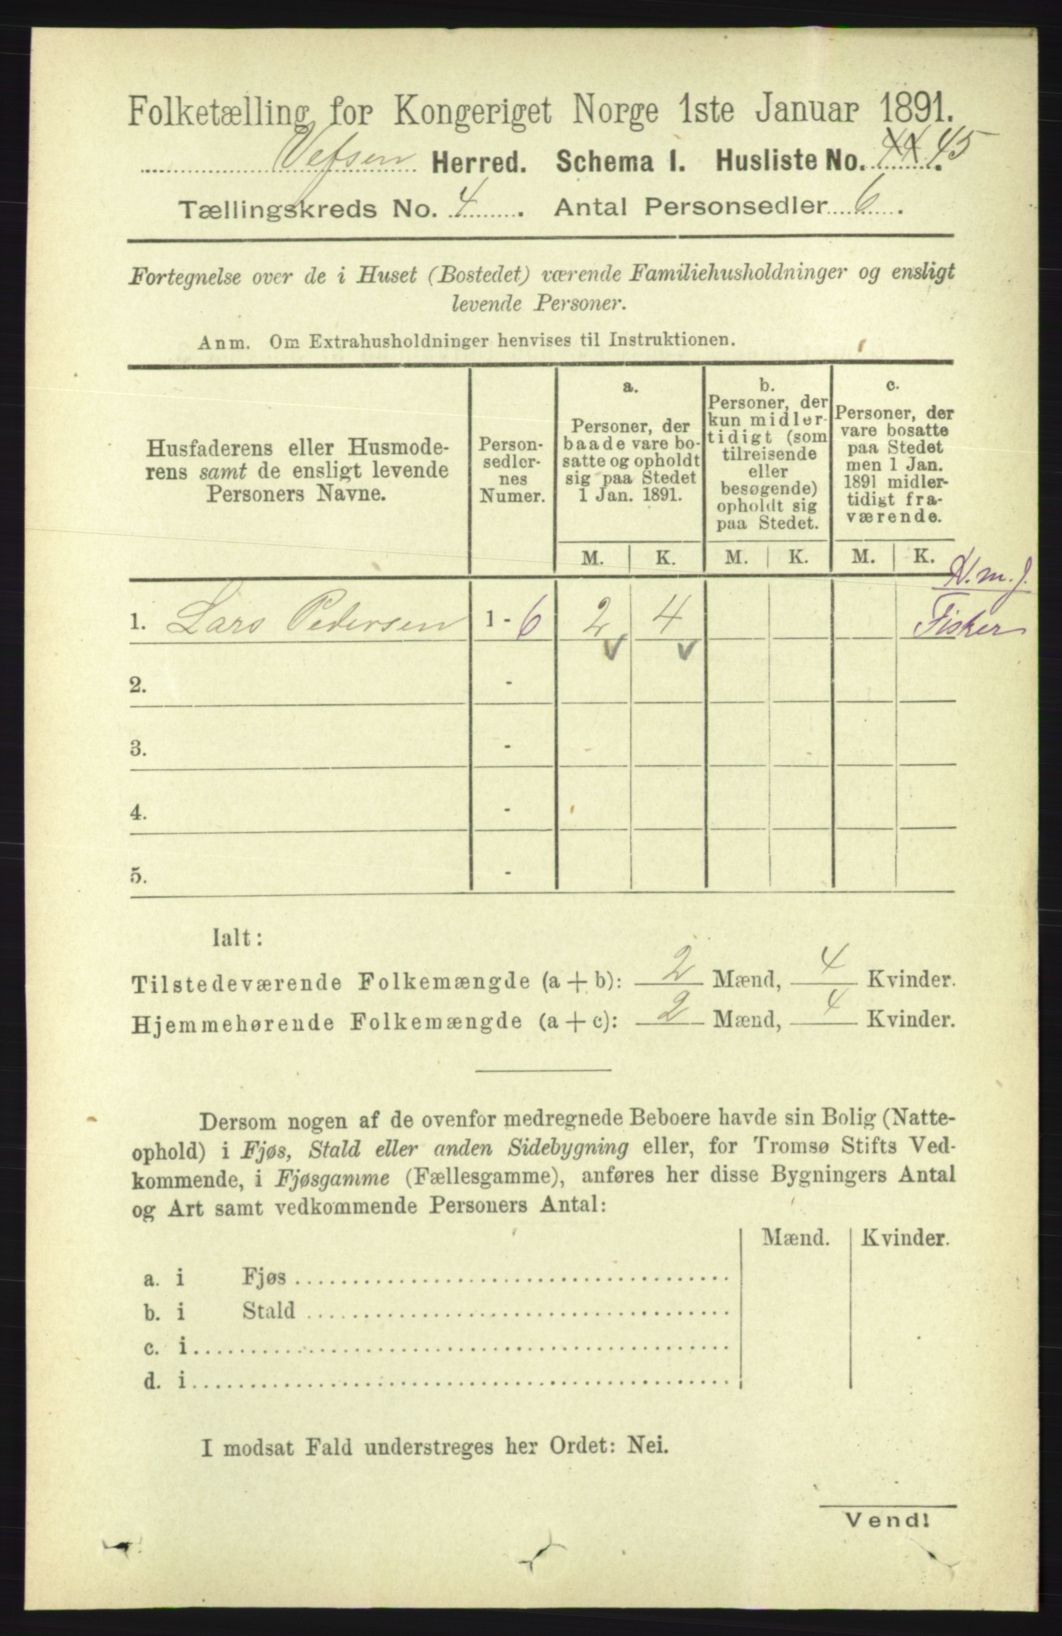 Folketælling for Kongeriget Norge 1ste Januar 1891.
Vefsen Herred. Schema I. Husliste No. 44 45.
Tællingskreds No. 4. Antal Personsedler 6.
Fortegnelse over de i Huset (Bostedet) værende Familiehusholdninger og ensligt
levende Personer.
Anm. Om Extrahusholdninger henvises til Instruktionen.
Husfaderens eller Husmode-
rens samt de ensligt levende
Personers Navne.
Person-
sedler-
nes
Numer.
a.
Personer, der
baade vare bo-
satte og opholdt
sig paa Stedet
1 Jan. 1891.
b.
Personer, der
kun midler-
tidigt (som
tilreisende
eller
besøgende)
opholdt sig
paa Stedet.
c.
Personer, der
vare bosatte
paa Stedet
men 1 Jan.
1891 midler-
tidigt fra-
værende.
M. K. M. K. M. K.
N.m.J.
1. Lars Pedersen 1 - 6 2 4 Fisker
2. -
3. -
4. -
5. -
Ialt:
Tilstedeværende Folkemængde (a + b): 2 Mænd, 4 Kvinder.
Hjemmehørende Folkemængde (a + c): 2 Mænd, 4 Kvinder.
Dersom nogen af de ovenfor medregnede Beboere havde sin Bolig (Natte-
ophold) i Fjøs, Stald eller anden Sidebygning eller, for Tromsø Stifts Ved-
kommende, i Fjøsgamme (Fællesgamme), anføres her disse Bygningers Antal
og Art samt vedkommende Personers Antal:
Mænd. Kvinder.
a. i Fjøs
b. i Stald
c. i
d. i
I modsat Fald understreges her Ordet: Nei.
Vend!